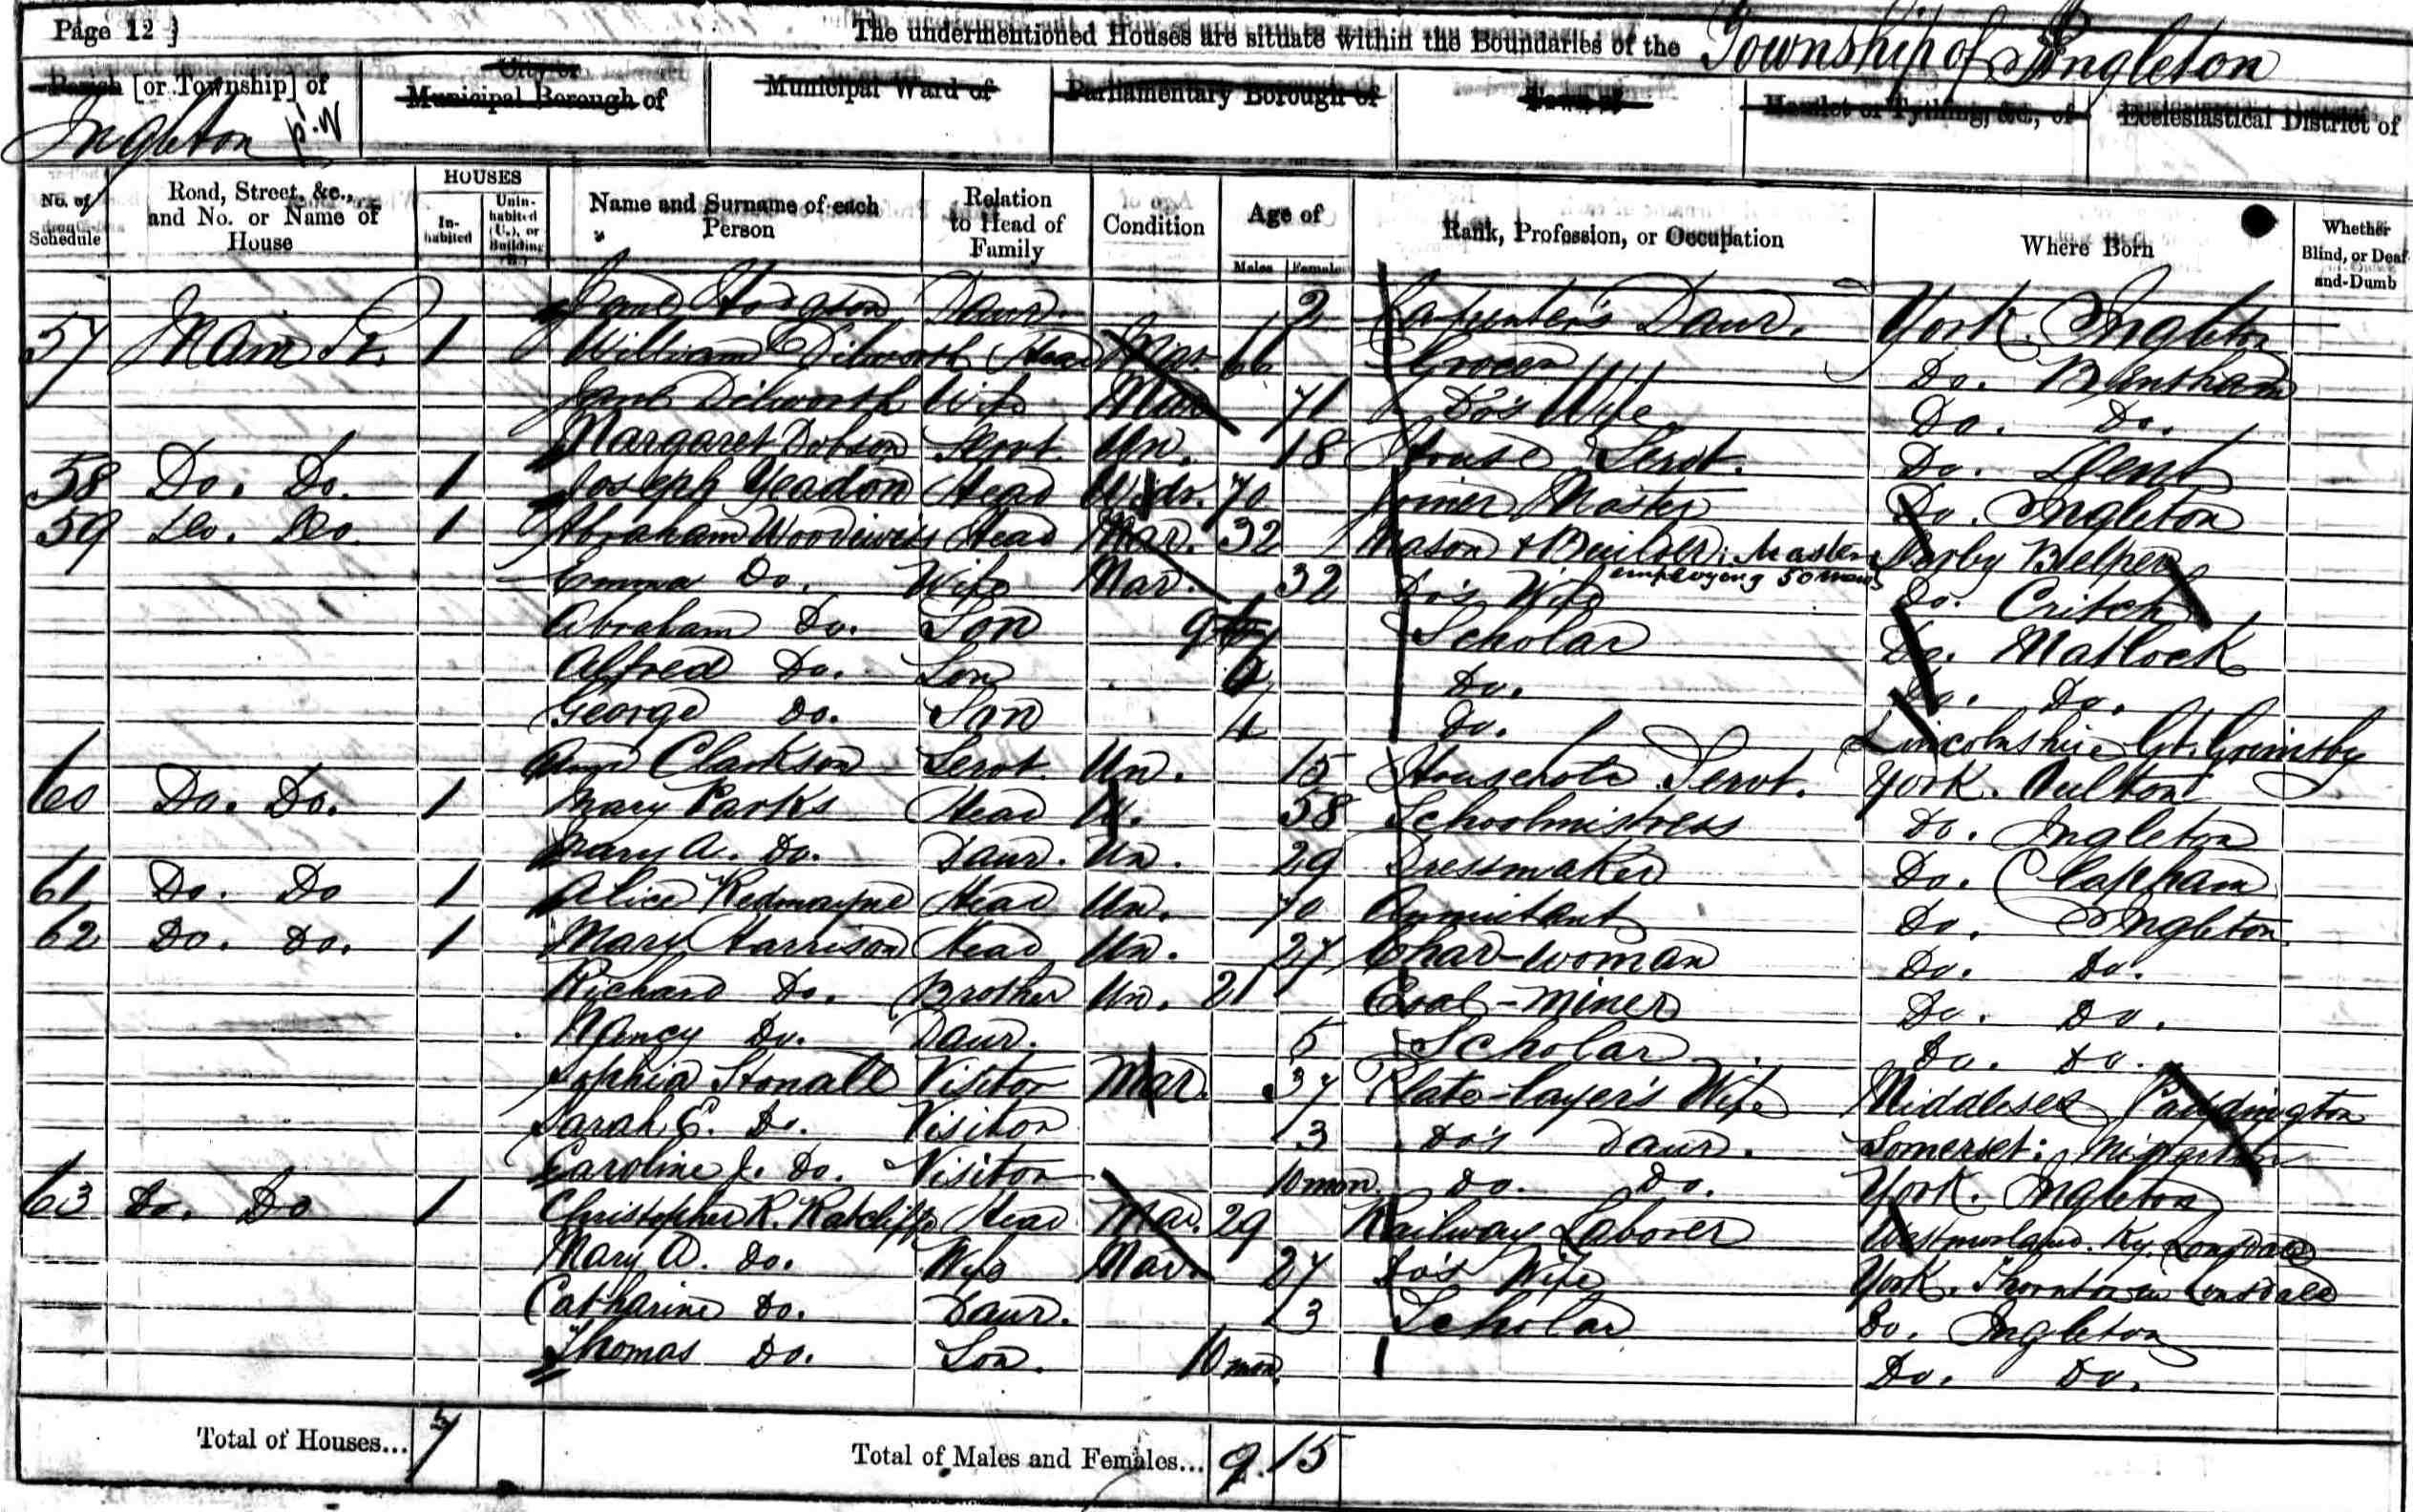 Page 12 } The undermentioned Houses are situate within the Boundaries of the Township of Ingleton
Parish [or Township] of City or Municipal Borough of Municipal Ward of Parliamentary Borough of Town of Hamlet or Tything, &c., of Ecclesiastical District of
Ingleton
No. of Schedule Road, Street, &c., and No. or Name of House HOUSES In-habited Unin-habited (U.), or Building (B.) Name and Surname of each Person Relation to Head of Family Condition Age of Males Females Rank, Profession, or Occupation Where Born Whether Blind, or Deaf-and-Dumb
Jane Hodgson Daur. 2 Carpenter's Daur. York. Ingleton
57 Main St. 1 William Dilworth Head Mar. 66 Grocer Do. Bentham
Jane Dilworth Wife Mar 71 Do's Wife Do. Do.
Margaret Dobson Servt. Un. 18 House Servt. Do. Dent
58 Do. Do. 1 Joseph Yeadon Head Widr. 70 Joiner Master Do. Ingleton
59 Do. Do. 1 Abraham Woodiwiss Head Mar. 32 Mason & Builder; Master employing 50 men Derby Belper
Emma Do. Wife Mar. 32 Do's Wife Do. Critch
Abraham Do. Son 9 Scholar Do. Matlock
Alfred Do. Son Do. Do. Do.
George Do. Son 4 Do. Lincolnshire Gt. Grimsby
Clarkson Servt. Un. 15 Househole Servt. York.
60 Do. Do. 1 Mary Parks Head W. 58 Schoolmistress Do. Ingleton
Mary A. Do. Daur. Un. 29 Dressmaker Do. Clapham
61 Do. Do 1 Alice Redmayne Head Un. 70 Annuitant Do. Ingleton
62 Do. Do. 1 Mary Harrison Head Un. 27 Char-woman Do. Do.
Richard Do. Brother Un. 21 Coal-miner Do. Do.
Nancy Do. Daur. 5 Scholar Do. Do.
Sophia Stonall Visitor Mar. 37 Plate-layer's Wife Middlesex Paddington
Sarah E. Do. Visitor 3 Do's Daur. Somerset:
Caroline J. Do. Visitor 10 mon Do. Do. York. Ingleton
63 Do. Do 1 Christopher R. Ratcliffe Head Mar. 29 Railway Laborer Westmorland. Ky. Lonsdale
Mary A. Do. Wife Mar. 27 Do's Wife York. Thornton in Lonsdale
Catharine Do. Daur. 3 Scholar Do. Ingleton
Thomas Do. Son. 10 mon. Do. Do.
Total of Houses... 7 Total of Males and Females... 9. 15